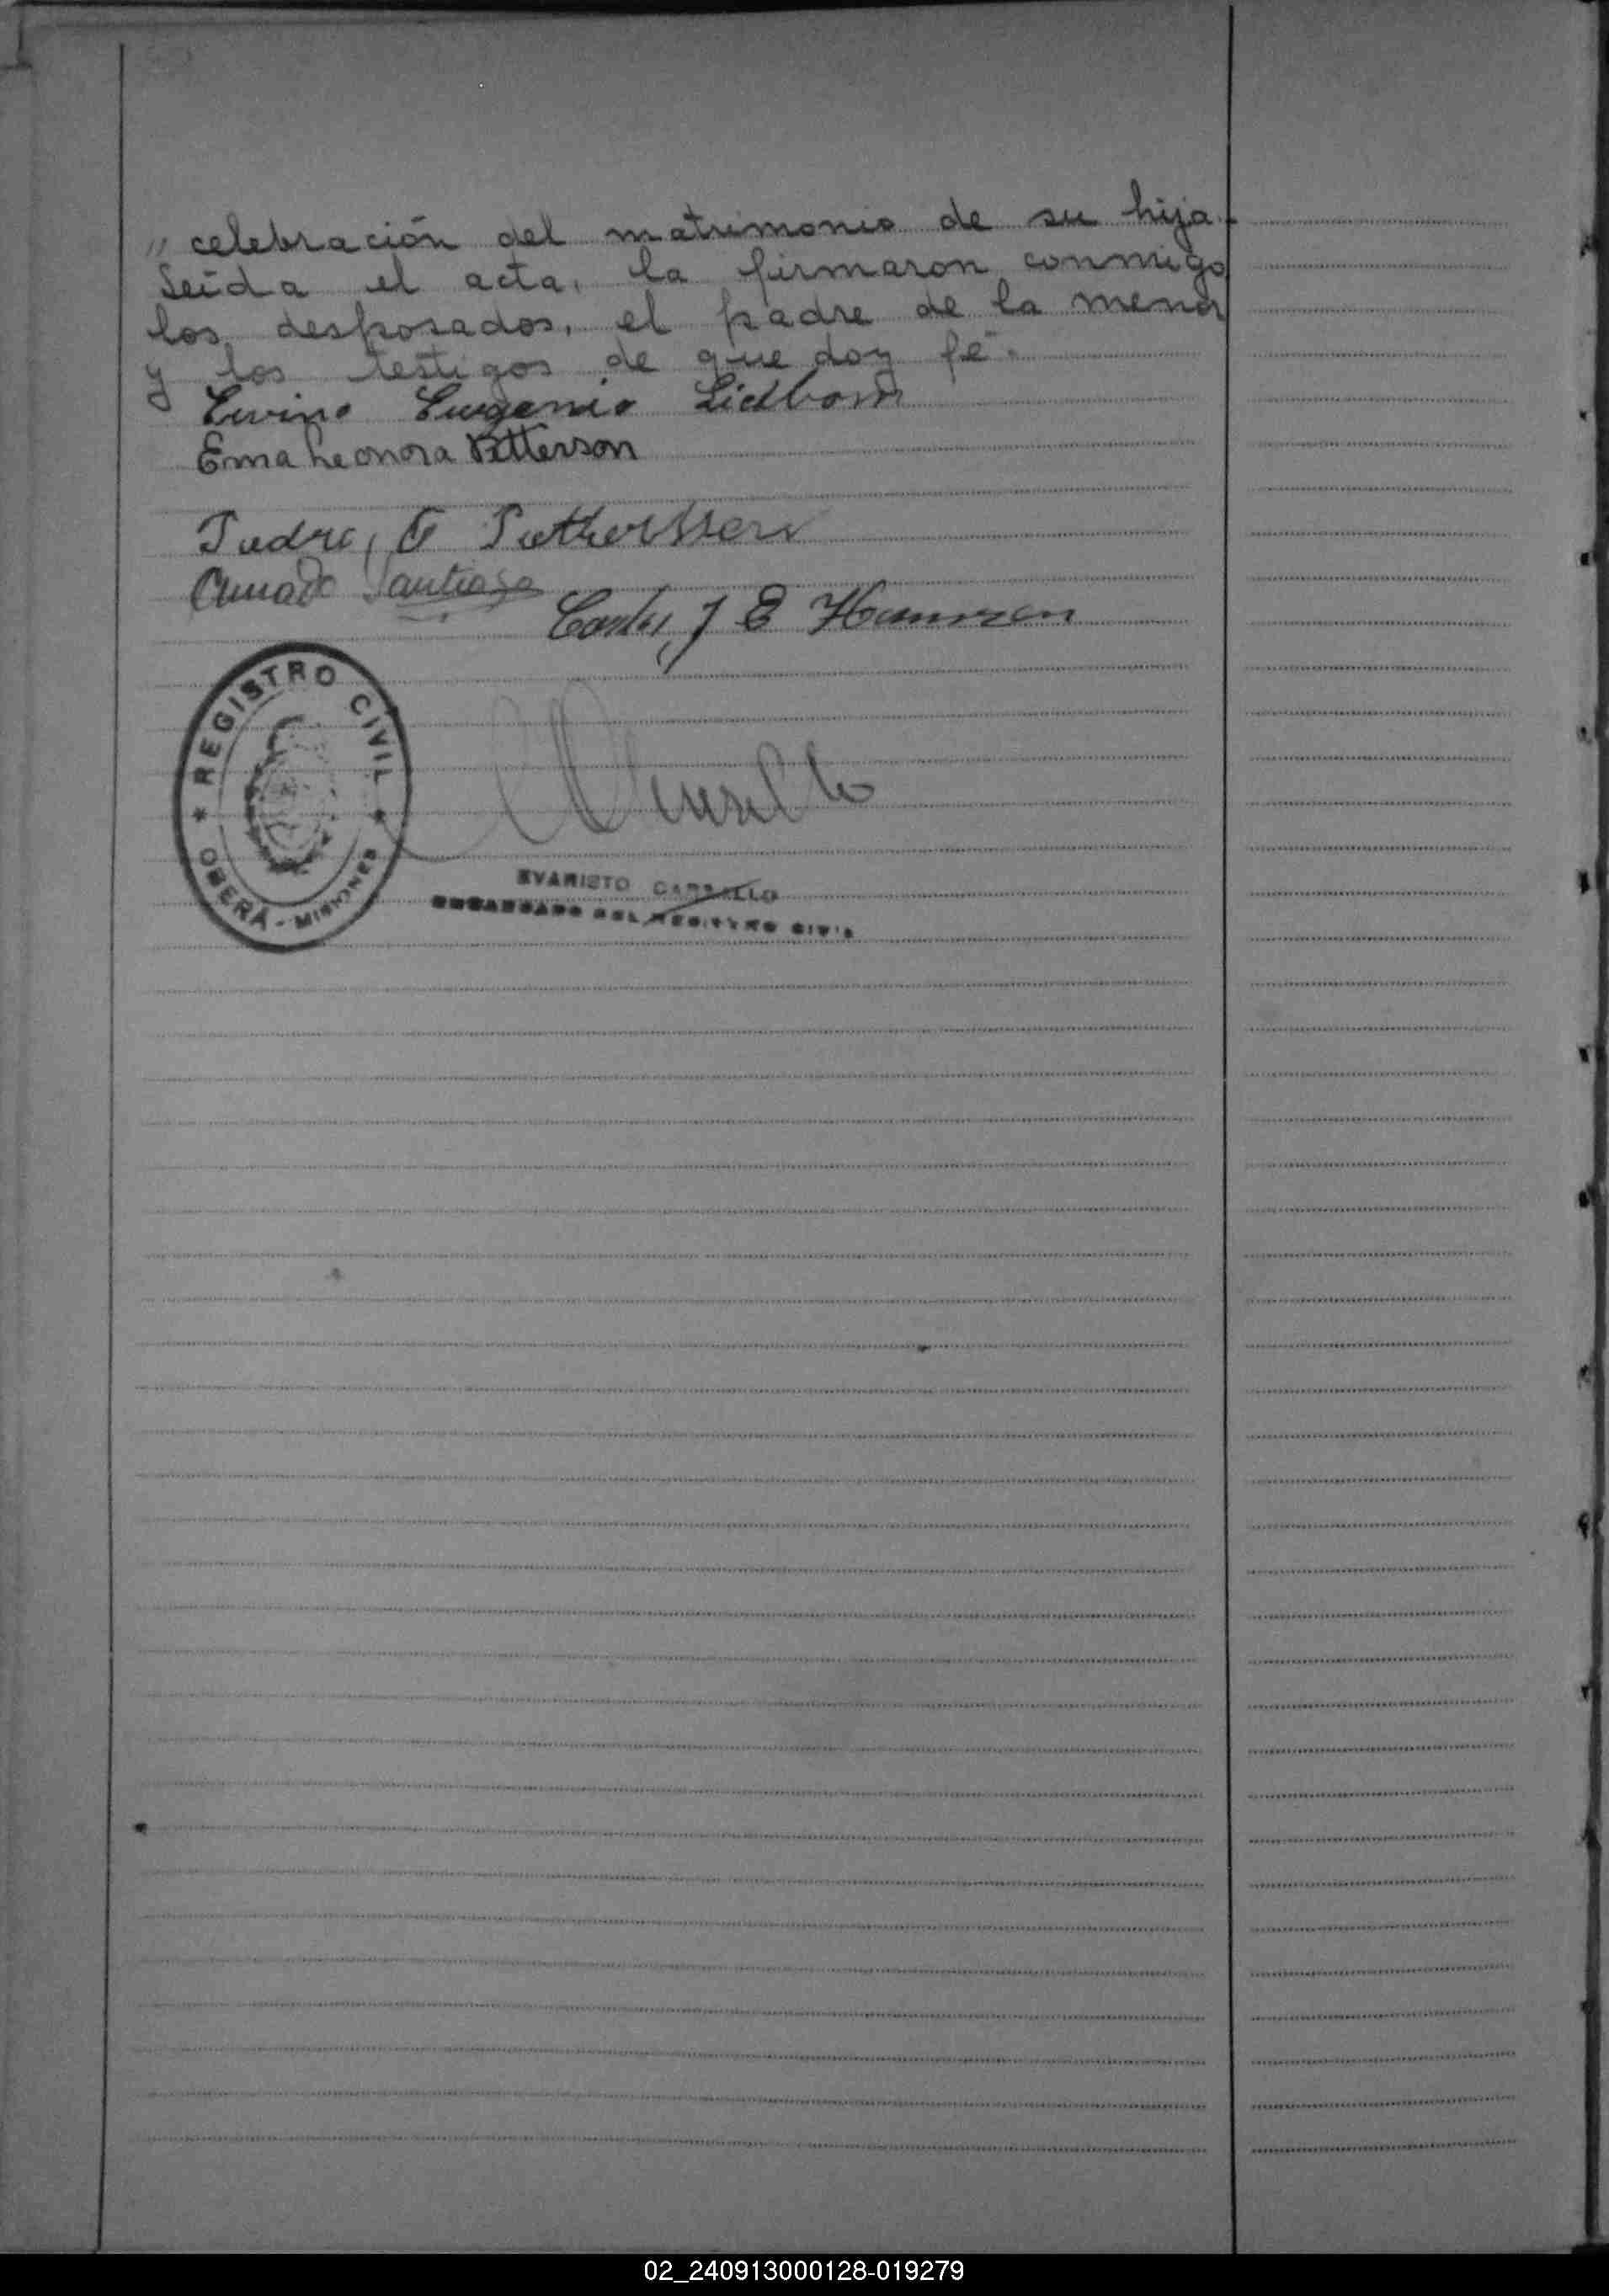 " celebración del matrimonio de su hija.-
Leída el acta, la firmaron conmigo
los desposados, el padre de la menor
y los testigos de que doy fé.-
Eugenio Lidbom
Ema Leonora Petterson
Pedro, G
Amado Santiago
Carlos, J E
REGISTRO CIVIL
OBERÁ - MISIONES
EVARISTO CARBALLO
ENCARGADO DEL REGISTRO CIVIL
02_240913000128-019279